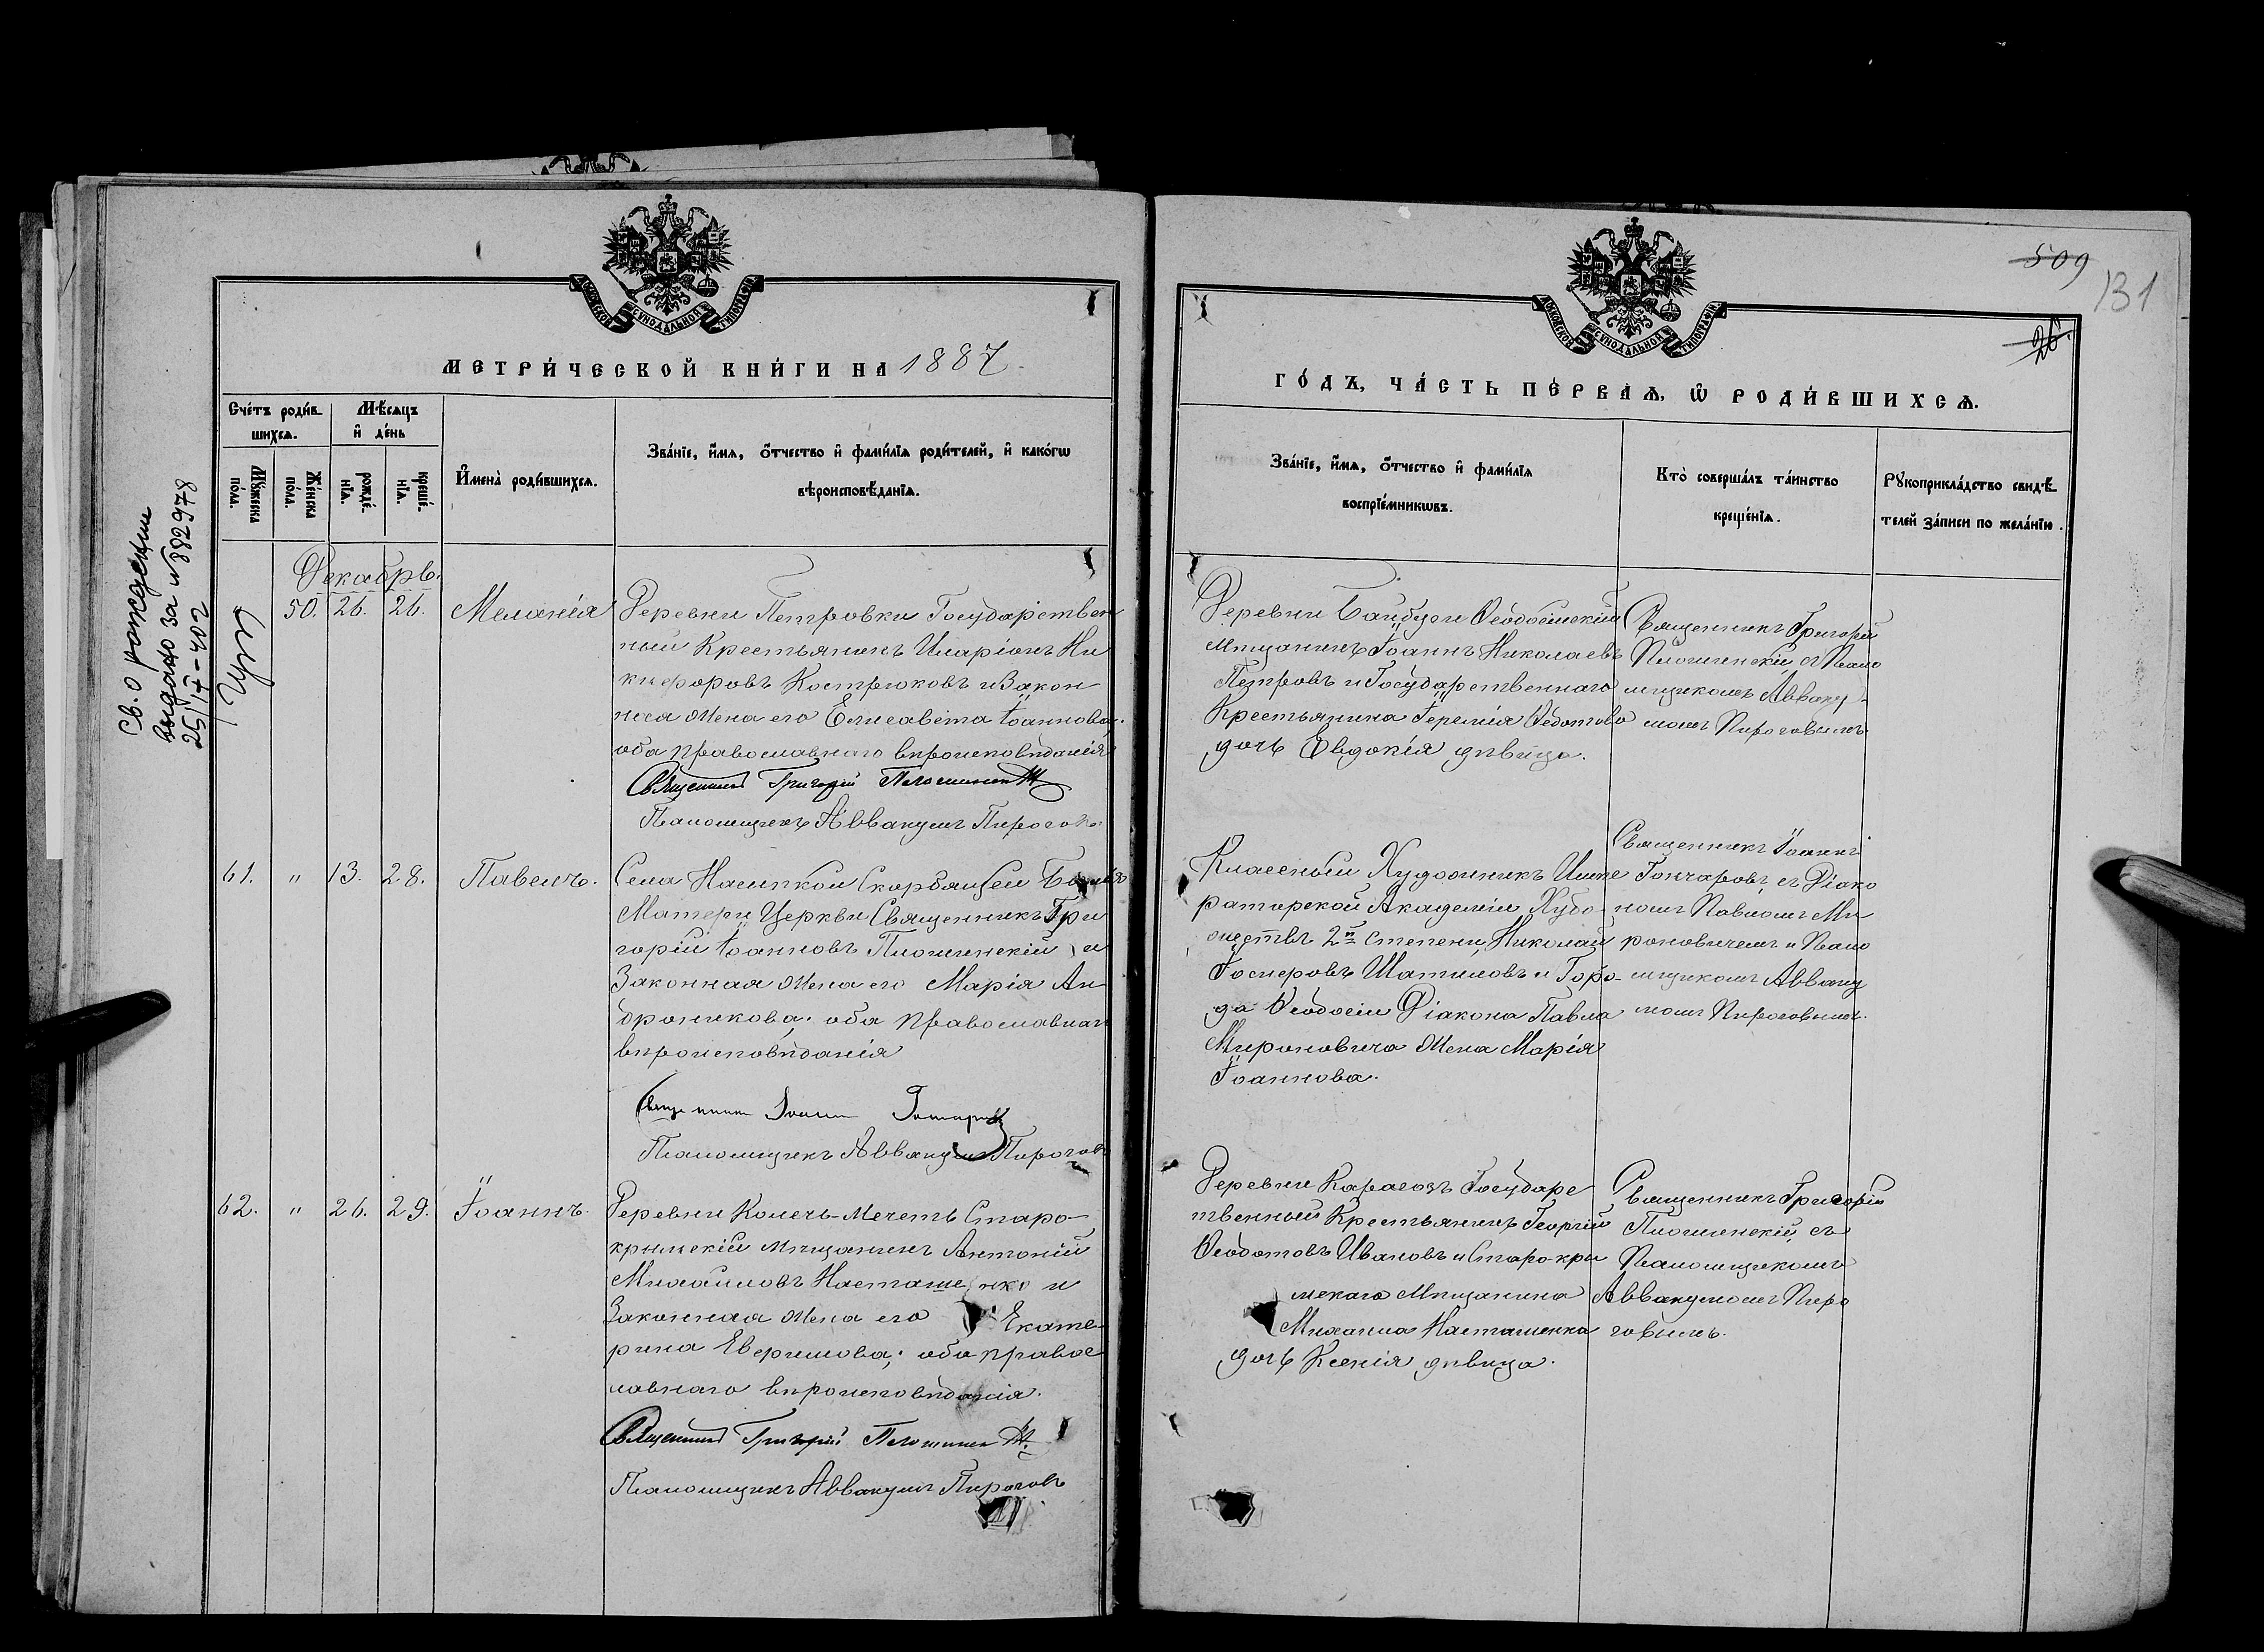 МОСКОВСКОЙ СѴНОДАЛЬНОЙ ТИПОГРАФІИ
МЕТРИ́ЧЕСКОЙ КНИ́ГИ НА 1887
Сче́тъ роди́в-
шихсѧ.
Мѣ́сѧцъ
и҆ де́нь
Мꙋ́жеска
по́ла.
Же́нска
по́ла.
рожде́-
нїѧ.
креще́-
нїѧ.
И҆мена̀ роди́вшихсѧ.
Зва́нїе, и҆́мѧ, ѻ҆́тчество и҆ фами́лїѧ роди́телей, и҆ како́гѡ
вѣроисповѣ́данїѧ.
Св. о рождении
выдано за № 8829978
25/VII-40 г
Декабрь.
50. 26. 26. Меланія
Деревни Петровки Государствен
ный Крестьянинъ Иларіонъ Ни
кифоровъ Костроковъ и Закон
ная жена его Елисавета Іоаннова.
оба православнаго вѣроисповѣданія
Священникъ Григорій
Псаломщикъ Аввакумъ Пирогов
61. " 13. 28. Павелъ.
Села Насыпкой Скорбящей Божіей
Матери Церкви Священникъ Гри
горій Іоанновъ Плошинскій и
Законная жена его Марія Ан
дроникова; оба православнаг
вѣроисповѣданія
Священникъ Іоаннъ Гончаровъ
Псаломщикъ Аввакумъ Пирогов
62. " 26. 29. Іоаннъ.
Деревни Колечь-Мечеть Старо-
крымскій мѣщанинъ Антоній
Михаиловъ Насташенко и
Законная жена его Екате-
рина Ефримова; оба правос
лавнаго вѣроисповѣданія.
Священникъ Григорій
Псаломщикъ Аввакумъ Пироговъ
509
131
26.
МОСКОВСКОЙ СѴНОДАЛЬНОЙ ТИПОГРАФІИ
ГО́ДЪ, ЧА́СТЬ ПЕ́РВАѦ, Ѡ҆ РОДИ́ВШИХСѦ.
Зва́нїе, и҆́мѧ, ѻ҆́тчество и҆ фами́лїѧ
воспрїе́мникѡвъ.
Кто̀ соверша́лъ та́инство
креще́нїѧ.
Рꙋкоприкла́дство свидѣ́-
телей за́писи по жела́нїю.
Деревни Байбуги Ѳеодосійскій
Мѣщанинъ Іоаннъ Николаевъ
Петровъ и Государственнаго
Крестьянина Іеремія Ѳедотова
дочь Евдокія дѣвица.
Священникъ Григорій
Плошинскій съ Псало
мщикомъ Авваку-
момъ Пироговымъ
Классный Художникъ Импе
раторской Академіи Худо-
жествъ 2й степени Николай
Іосифовъ Шатиловъ и Горо-
да Ѳеодосіи Діакона Павла
Мироновича жена Марія
Іоаннова.
Священникъ Іоаннъ
Гончаровъ съ Діако
номъ Павломъ Ми
роновичемъ и Псало
мщикомъ Авваку
момъ Пироговымъ.
Деревни Карагозъ Государс
твенный Крестьянинъ Георгій
Ѳеодотовъ Ивановъ и Старо-кры
мскаго Мѣщанина
Михаила Насташенка
дочь Ксенія дѣвица.
Священникъ Григорій
Плошинскій, съ
Псаломщикомъ
Аввакумомъ Пиро
говымъ.